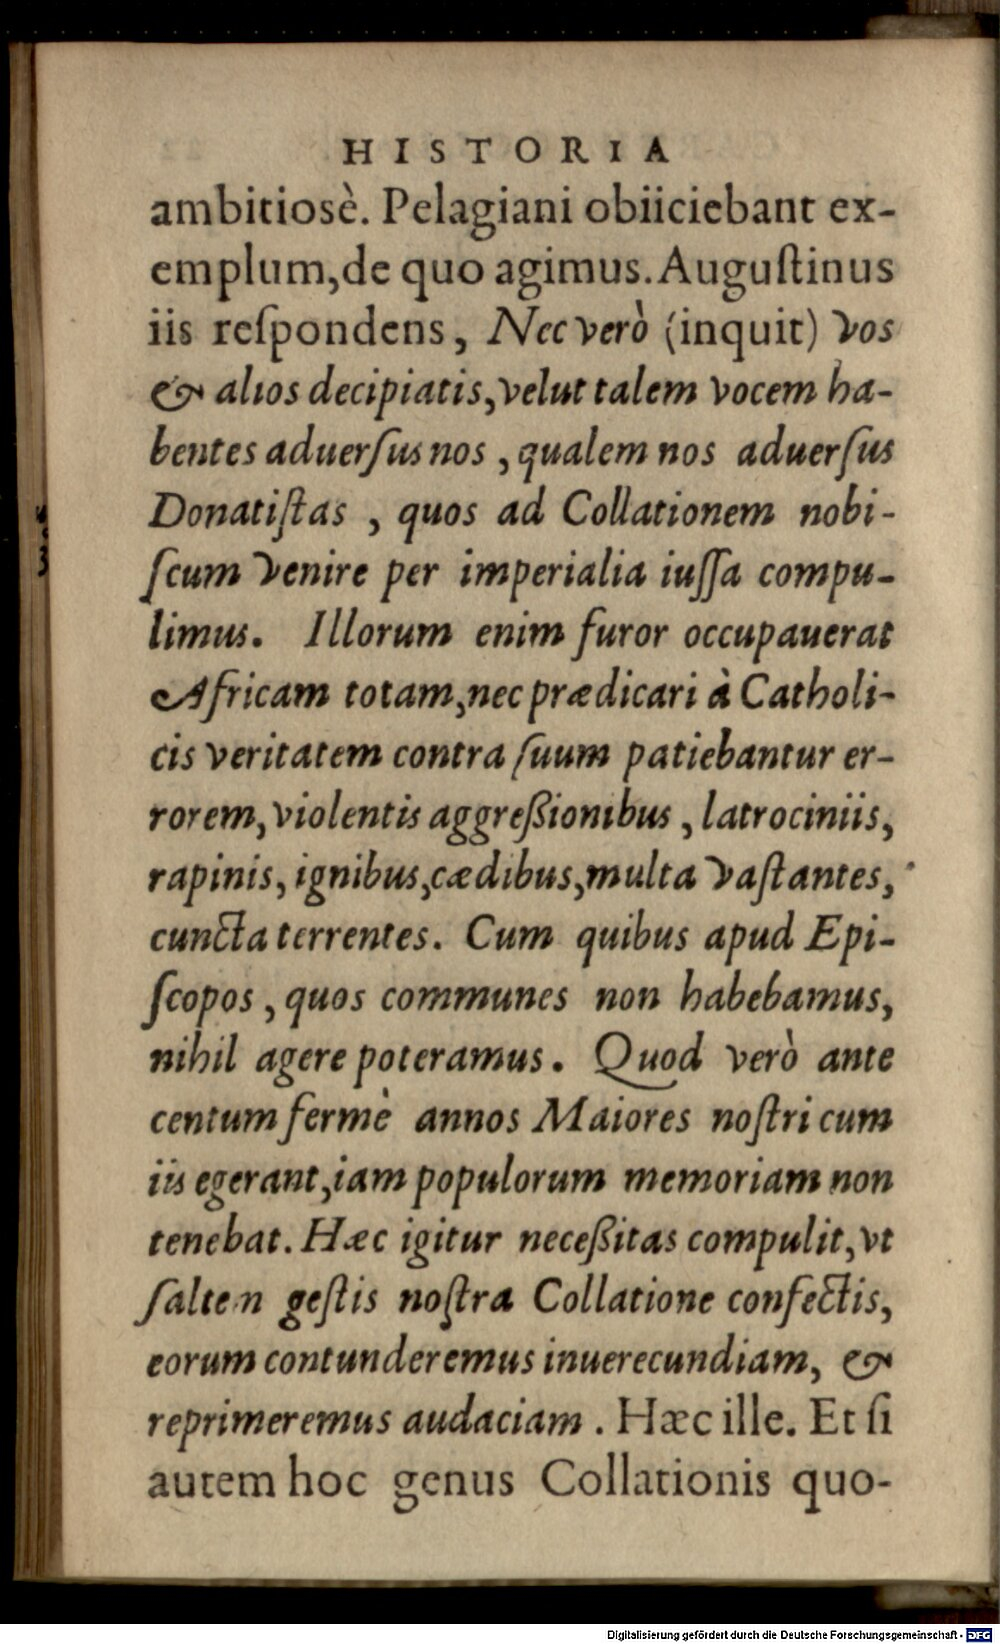 HISTORIA
ambitiosè. Pelagiani obiiciebant ex-
emplum,de quo agimus. Auguſtinus
iis reſpondens, Nec verò (inquit) vos
& alios decipiatis, velut talem vocem ha-
bentes aduerſus nos, qualem nos aduerſus
Donatiſtas, quos ad Collationem nobi-
ſcum venire per imperialia iuſſa compu-
limus. Illorum enim furor occupauerat
Africam totam, nec prædicari à Catholi-
cis veritatem contra ſuum patiebantur er-
rorem, violentis aggreßionibus, latrociniis,
rapinis, ignibus, cædibus, multa vaſtantes,
cuncta terrentes. Cum quibus apud Epi-
ſcopos, quos communes non habebamus,
nihil agere poteramus. Quod verò ante
centum fermè annos Maiores noſtri cum
iis egerant, iam populorum memoriam non
tenebat. Hæc igitur neceßitas compulit, vt
ſaltem geſtis noſtra Collatione confectis,
eorum contunderemus inuerecundiam, &
reprimeremus audaciam. Hæc ille. Et ſi
autem hoc genus Collationis quo-
Digitalisierung gefördert durch die Deutsche Forschungsgemeinschaft - DFG